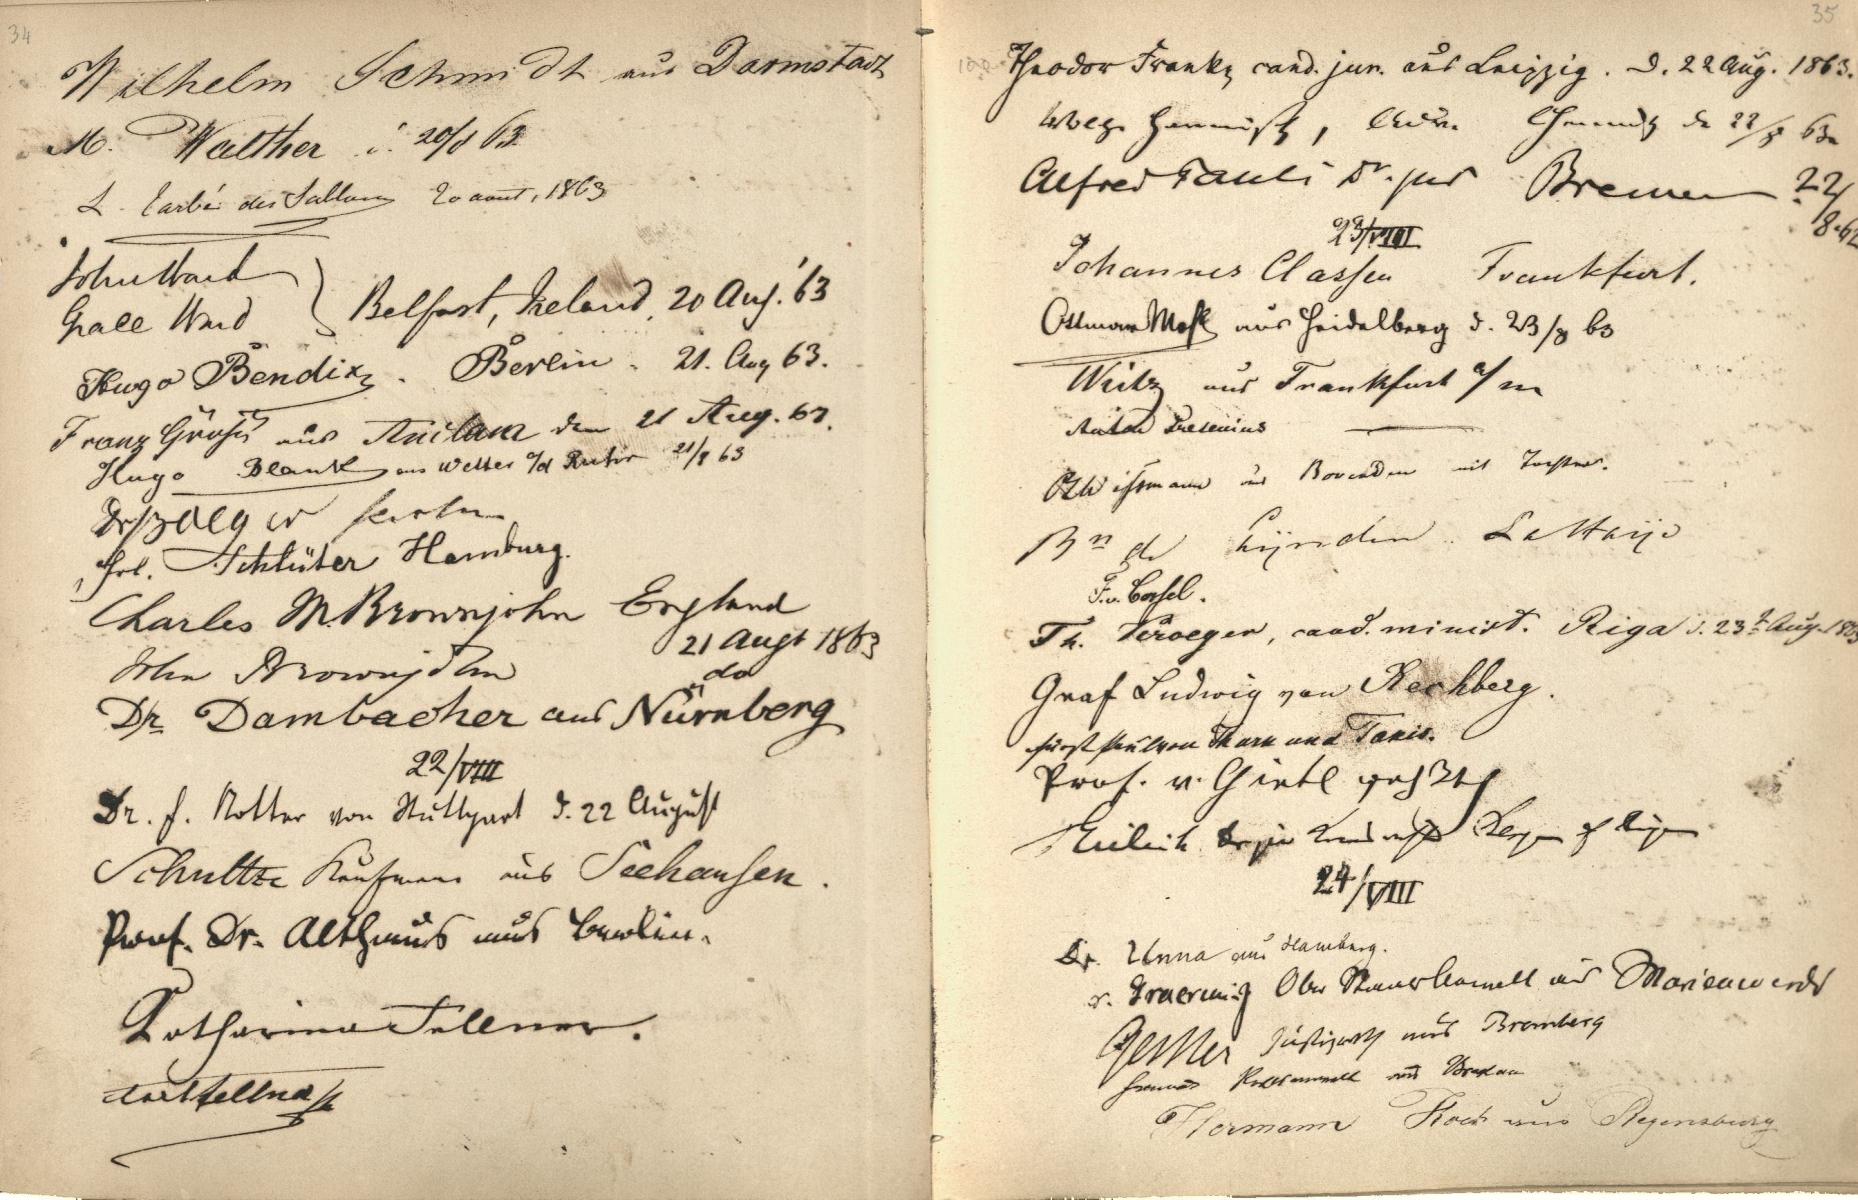 34
Wilhelm Schmidt aus Darmstadt
M. Walther 20/8 63
L. Tarbé des Sablons 20 aout, 1863
John Ward
Ward
Belfast, Ireland, 20 Aug. '63
Hugo Bendix. Berlin. 21. Aug 63.
Franz aus den 21 Aug. 63.
Hugo Blank aus Wetter a/d Ruhr 21/8 63
Berlin
Frl. Schlüter Hamburg.
Charles M. Brownjohn England
21 Augt 1863
John Brownjohn do
Dr Dambacher aus Nürnberg
22/VIII
Dr. f. Notter von Stuttgart d. 22 August
Schultze Kaufmann aus Seehausen.
Prof. Dr. Althaus aus Berlin.
Katharina Fellner.
35
100
Theodor Franke, cand. jur. aus Leipzig. d. 22 Aug. 1863.
Chemnitz d 22/8 63
Alfred Pauli Dr. jur Bremen 22/
8. 63
23/VIII
Johannes Classen Frankfurt.
Ottmar Mohl aus Heidelberg d. 23/8 63
Weitz aus Frankfurt a/m
Anton Fresenius
aus Bovenden mit
Bn de Lijnden. La Haije
F. v. Cassel.
Th. Kroeger, cand. minist. Riga d. 23t Aug. 1863
Graf Ludwig von Rechberg.
Fürst Paul von Thurn und Taxis.
Prof. v. Gietl
24/VIII
Dr. Unna aus Hamburg.
v. Ober Staatsanwalt aus Marienwerder
Gessler Justizrath aus Bromberg
Rechtsanwalt aus Breslau
Hermann Koch aus Regensburg